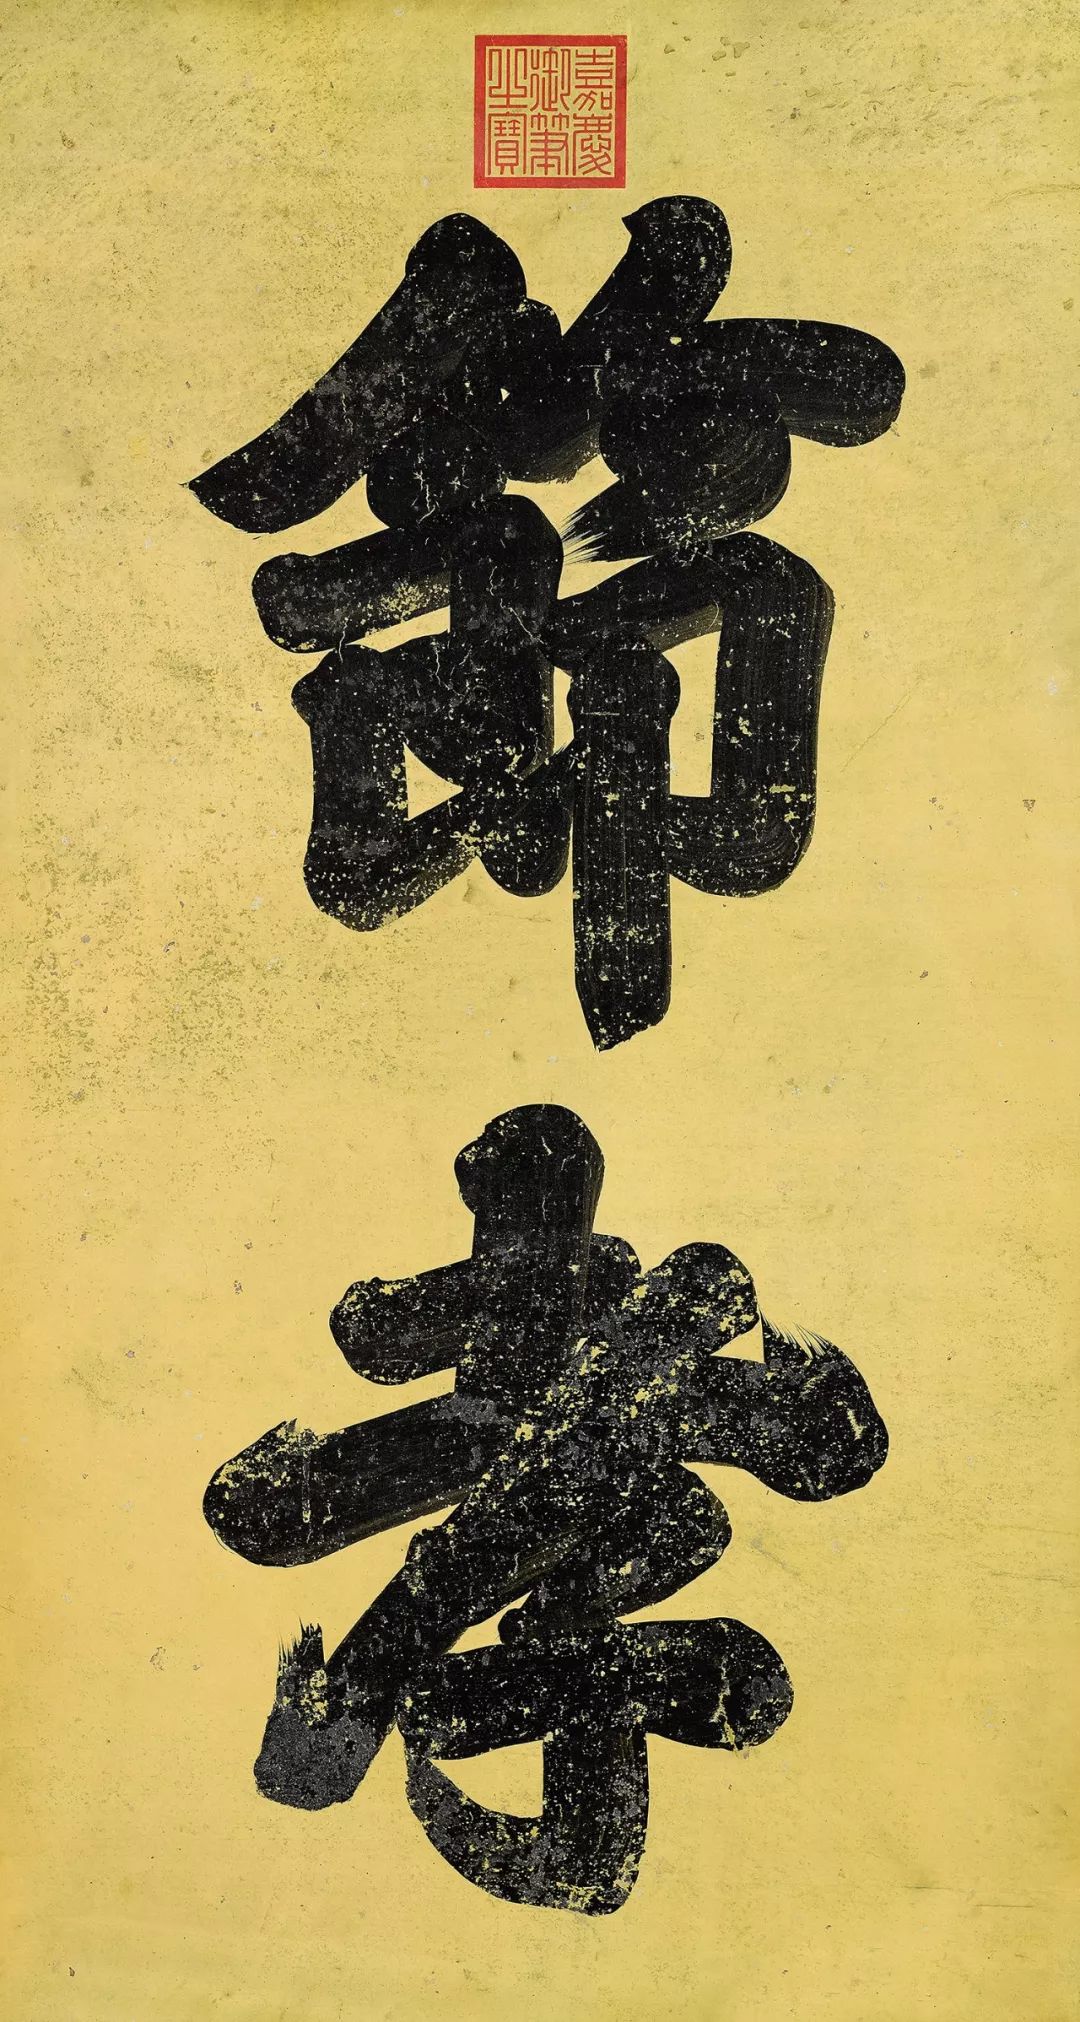 嘉慶
御筆
之寶
節孝